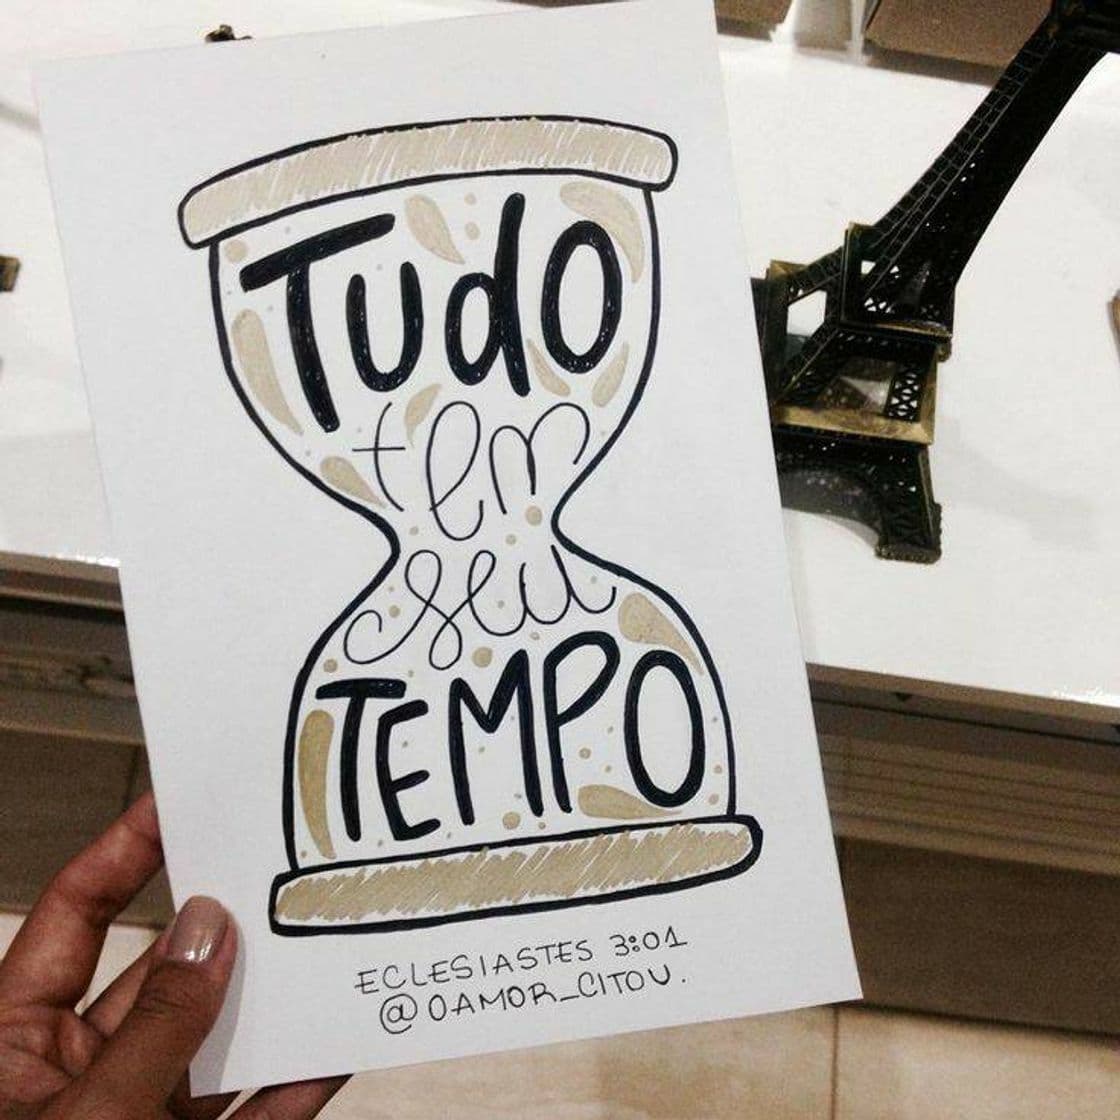 Tudo
tem
seu
TEMPO
ECLESIASTES 3:01
@OAMOR_CITOU.